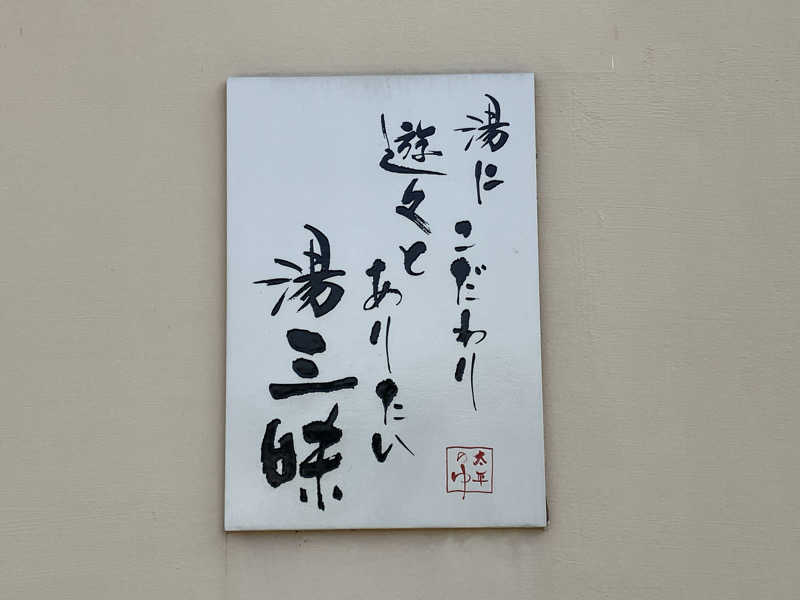 湯にこだわり
遊々と
ありたい
湯三昧
太平
のゆ